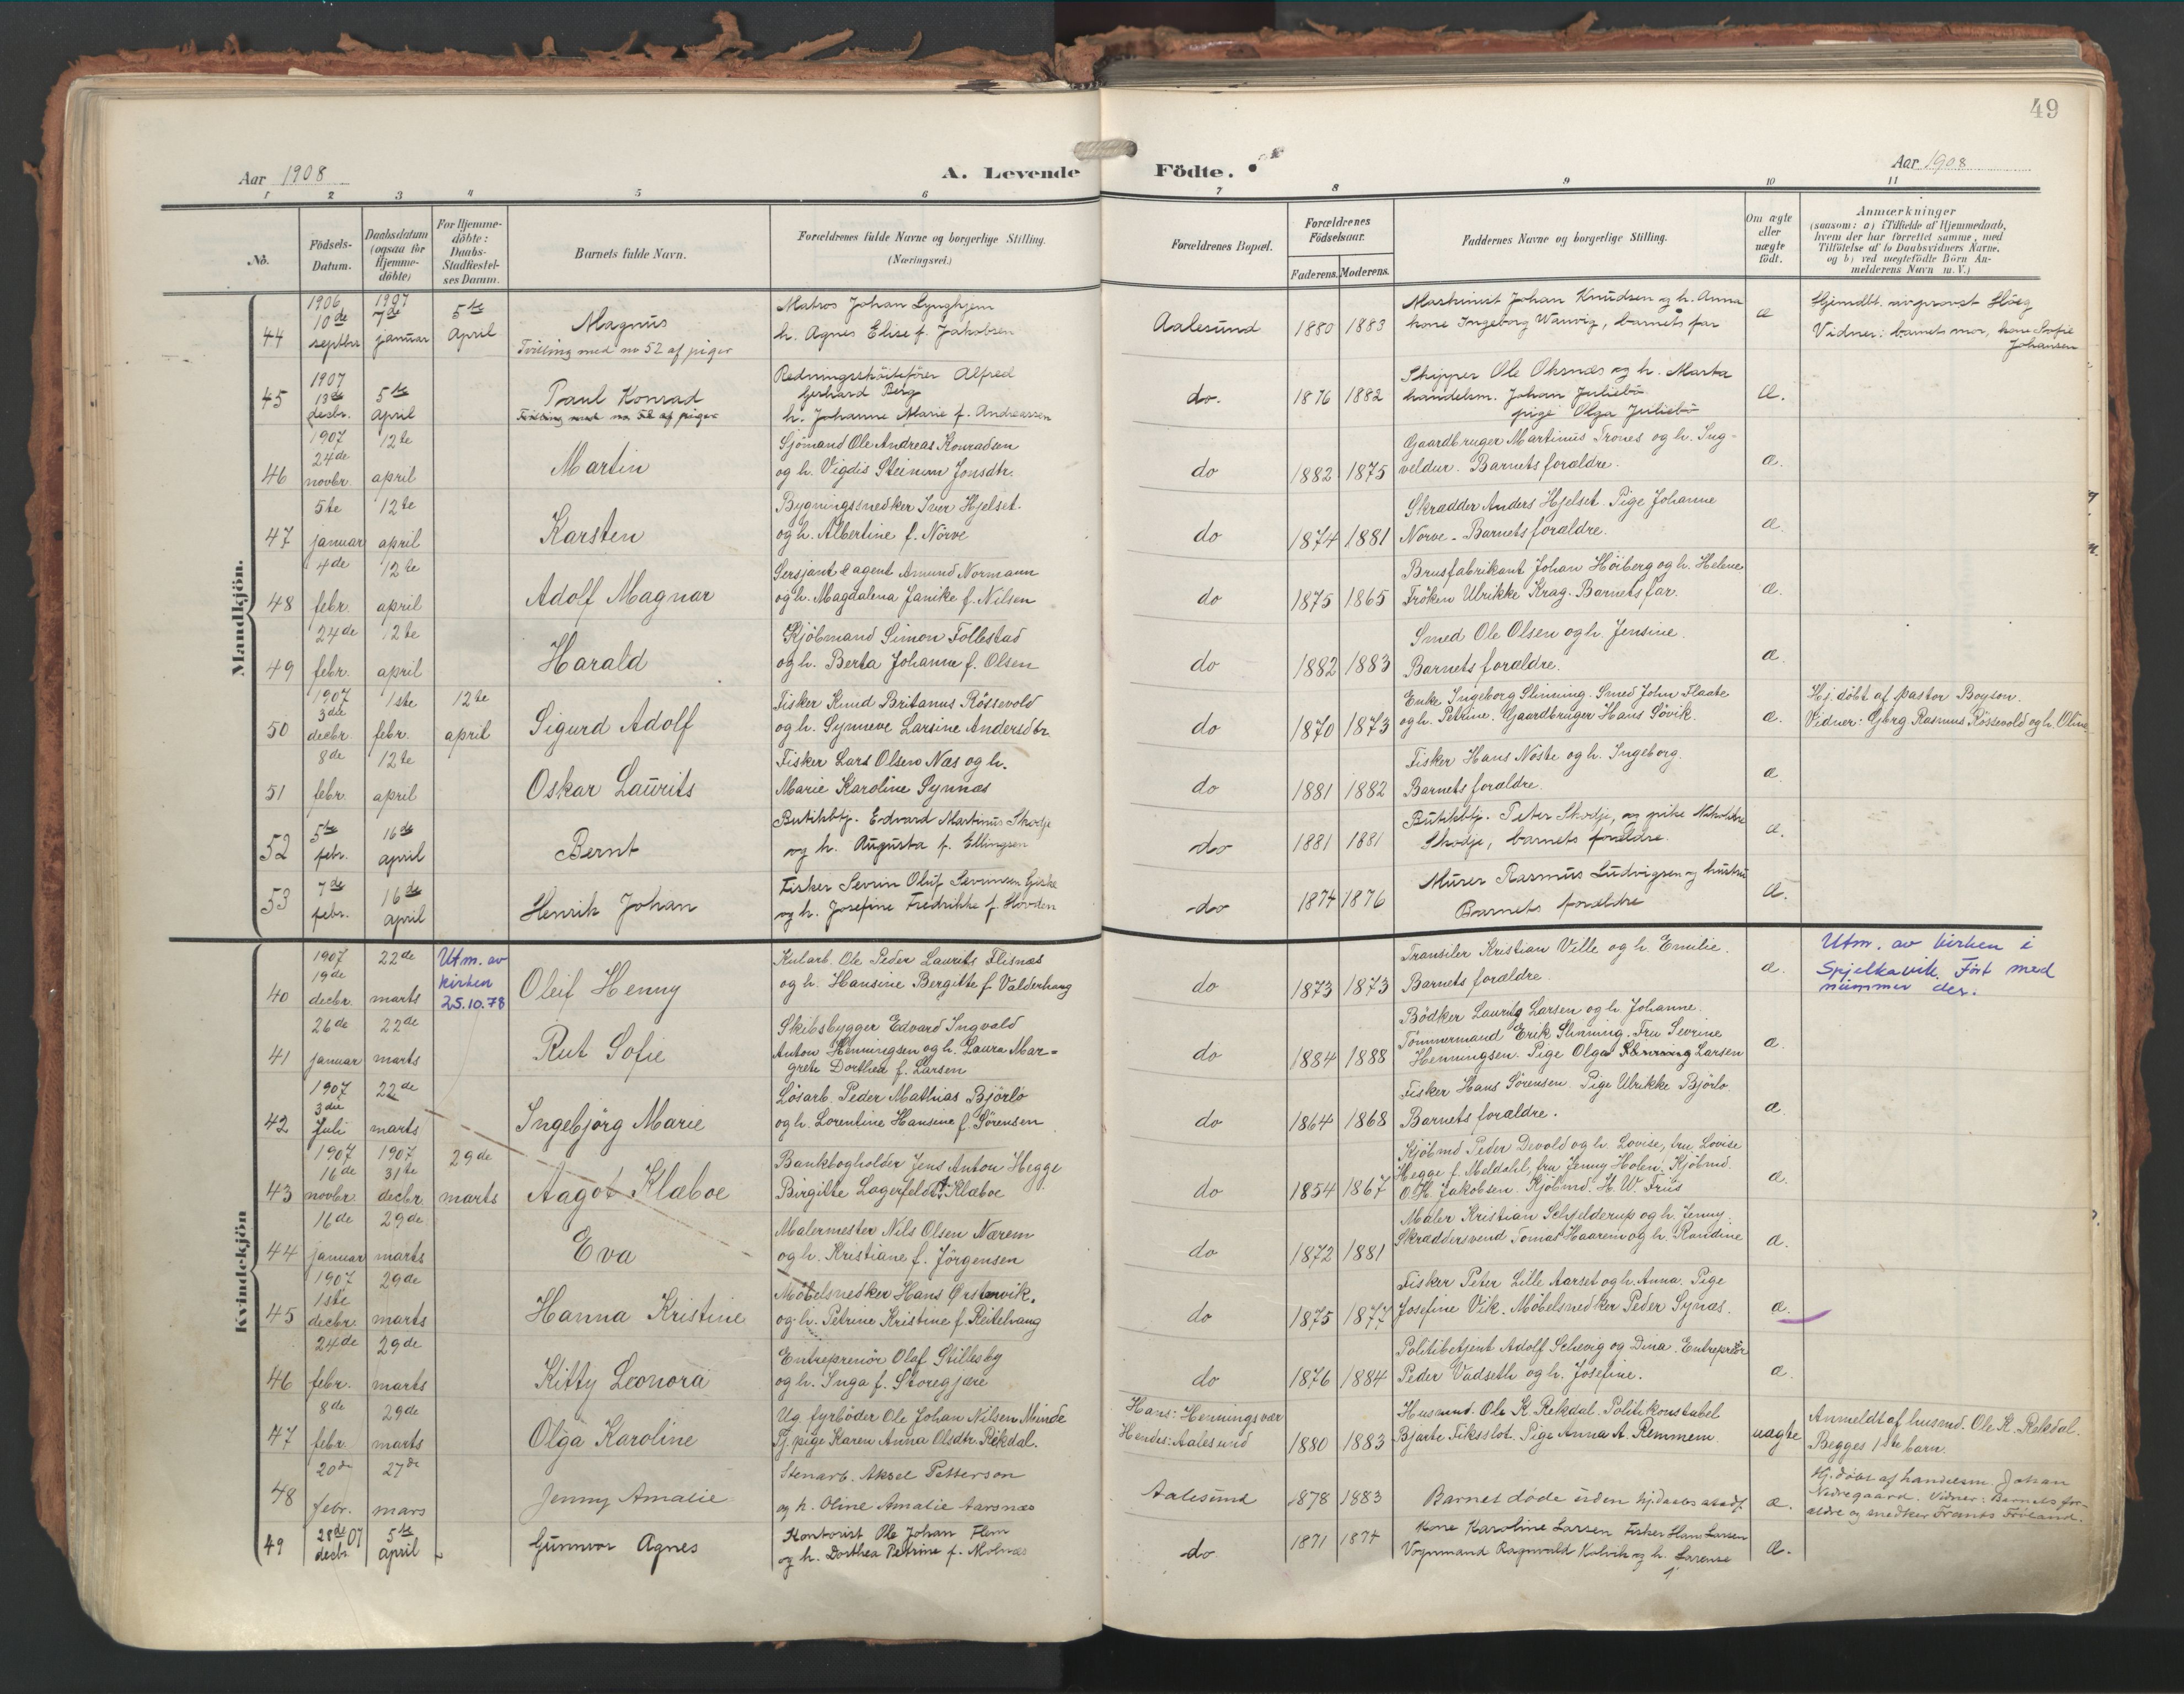 49
Aar 1908
A. Levende
Födte.
Aar 1908
1 2 3 4 5 6 7 8 9 10 11
No.
Födsels-
Datum.
Daabsdatum
(ogsaa for
Hjemme-
döbte)
For Hjemme-
döbte:
Daabs-
Stadfæstel-
ses Datum.
Barnets fulde Navn.
Forældrenes fulde Navne og borgerlige Stilling.
(Næringsvei.)
Forældrenes Bopæl.
Forældrenes
Födselsaar.
Faderens. Moderens.
Faddernes Navne og borgerlige Stilling.
Om ægte
eller
uægte
födt.
Anmærkninger
(saasom: a) i Tilfælde af Hjemmedaab,
hvem der har forrettet samme, med
Tilföielse af to Daabsvidners Navne.
og b) ved uægtefödte Börn An-
melderens Navn m. V.)
Mandkjön.
44
1906
10de
septbr
1907
7de
januar
5te
April
Magnus
Tvilling med no 52 af piger
Matros Johan Lynghjem
h. Agnes Elise f. Jakobsen
Aalesund
1880 1883
Maskinist Johan Knudsen og h. Anna
kone Ingeborg Wanvig, barnets far
æ
Hjemdbt. av provst Höeg
Vidner: barnets mor, kone Sofie
Johansen
45
1907
13de
desbr.
5te
April
Paul Konrad
Tvilling med no 52 af piger
Redningsskøitefører Alfred
Gerhard Berg
h. Johanne Marie f. Andreassen
do.
1876 1882
Skipper Ole Oksnæs og h. Marta
handelsm. Johan Juliebö
pige Olga Juliebö
æ.
46
1907
24de
novbr.
12te
april
Martin
Sjömand Ole Andreas Konradsen
og h. Vigdis Steinum Jonsdtr.
do
1882 1875
Gaardbruger Martinus Trones og h. Ing-
veldur. Barnets forældre.
æ.
47
5te
januar
12te
april
Karsten
Bygningssnedker Iver Hjelset.
og h. Albertine f. Nörve
do
1874 1881
Skrædder Anders Hjelset. Pige Johanne
Norve - Barnets forældre.
æ.
48
4de
febr.
12te
april
Adolf Magnar
Sersjant & agent Amund Normann
og h. Magdalena Janike f. Nilsen
do
1875 1865
Brusfabrikant Johan Höiberg og h. Helene
Fröken Ulrikke Krag. Barnets far.
æ.
49
24de
febr.
12te
april
Harald
Kjöbmand Simon Follestad
og h. Berta Johanne f. Olsen
do
1882 1883
Smed Ole Olsen og h. Jensine.
Barnets forældre.
æ.
50
1907
3die
decbr.
1ste
febr.
12te
april
Sigurd Adolf
Fisker Knud Britanus Rössevold
og h. Synneve Larsine Andersdtr.
do
1870 1873
Enke Ingeborg Slinning. Smed John Flaate
og h. Petrine. Gaardbruger Hans Sövik.
æ.
Hj. döbt af pastor Boyson.
Vidner: Gbrg Rasmus Rössevold og h. Oline
51
8de
febr.
12te
april
Oskar Laurits
Fisker Lars Olsen Næs og h.
Marie Karoline Synnæs
do
1881 1882
Fisker Hans Noste og h. Ingeborg.
Barnets forældre.
æ.
52
5te
febr.
16de
april
Bernt
Butikbtj. Edvard Martinus Skodje
og h. Augusta f. Ellingsen
do
1881 1881
Butikbtj. Peter Skodje, og pike
Skodje, barnets forældre.
æ.
53
7de
febr.
16de
april
Henrik Johan
Fisker Sevrin Oluf Sevrinsen Giske
og h. Josefine Fredrikke f. Hovden
do
1874 1876
Murer Rasmus Ludvigsen og hustru
Barnets forældre
æ.
Kvindekjön
40
1907
19de
decbr.
22de
marts
Utm. av
kirken
25.10.78
Oleif Henny
Kularb. Ole Peder Laurits Flisnæs
og h. Hansine Bergitte f. Valderhaug
do
1873 1873
Kristian Ville og h. Emilie.
Barnets forældre.
æ.
Utm. av kirken i
Spjelkavik. Ført med
nummer der.
41
26de
januar
22de
marts
Rut Sofie
Skibsbygger Edvard Ingvald
Anton Henningsen og h. Laura Mar-
grete Dorthea f. Larsen
do
1884 1888
Bödker Laurits Larsen og h. Johanne.
Tömmermand Erik Slinning. Fru Sevrine
Henningsen. Pige Olga Larsen
æ.
42
1907
3die
Juli
22de
marts
Ingebjörg Marie
Lösarb. Peder Mathias Björlo
og h. Lorentine Hansine f. Sörensen
do
1864 1868
Fisker Hans Sörensen. Pige Ulrikke Björlo
Barnets forældre.
æ.
43
1907
16de
novbr.
1907
31te
decbr
29de
marts
Aagot Klæboe
Bankbogholder Jens Anton Hegge
Birgitte Lagerfeldt f. Klæboe
do
1854 1867
Kjöbmd Peder Devold og h. Lovise, fru Lovise
Hegge f. Meldahl, fru Jenny Holen. Kjöbmd.
O. K. Jakobsen. Kjöbmd. H. W. Friis
æ.
44
16de
januar
29de
marts
Eva
Malermester Nils Olsen Nærem
og h. Kristiane f. Jörgensen
do
1872 1881
Maler Kristian Schjelderup og h. Jenny.
Skræddersvend Tomas Haarem og h. Randine
æ.
45
1907
1ste
decbr.
29de
marts
Hanna Kristine
Möbelsnedker Hans Ørstenvik.
og h. Petrine Kristine f. Reitelvang
do
1875 1877
Fisker Peter Lille Aarset og h. Anna. Pige
Josefine Vik. Möbelsnedker Peder Synæs.
æ.
46
24de
febr.
29de
marts
Kitty Leonora
Entreprenör Olaf Stillesby
og h. Inga f. Storegjære
do
1876 1884
Politibetjent Adolf Schevig og Dina. Entreprenör
Peder Vadseth og h. Josefine.
æ.
47
8de
febr.
29de
marts
Olga Karoline
Ug. fyrböder Ole Johan Nilsen Minde
Tj. pige Karen Anna Olsdtr. Rekdal.
Hans: Henningsvær
Hendes: Aalesund
1880 1883
Husmd. Ole K. Rekdal. Politikonstabel
Bjarte Fiksslot. Pige Anna A. Remmem.
uægte
Anmeldt af husmd. Ole K. Rekdal.
Begges 1ste barn.
48
20de
febr.
27de
mars
Jenny Amalie
Stenarb. Aksel Petterson
og h. Oline Amalie Aarsnæs
Aalesund
1878 1883
Barnet döde uden hj.daabs stadf.
æ.
Hj.döbt af handelsm. Johan
Nedregaard. Vidner: Barnets for-
ældre og snedker Frants Förland.
49
28de 07
decbr.
5te
april
Gunnvor Agnes
Kontorist Ole Johan Flem
og h. Dorthea Petrine f. Molnæs
do
1871 1874
Kone Karoline Larsen Fisker Hans Larsen
Vognmand Ragnvald Kolvik og h. Larense
æ.